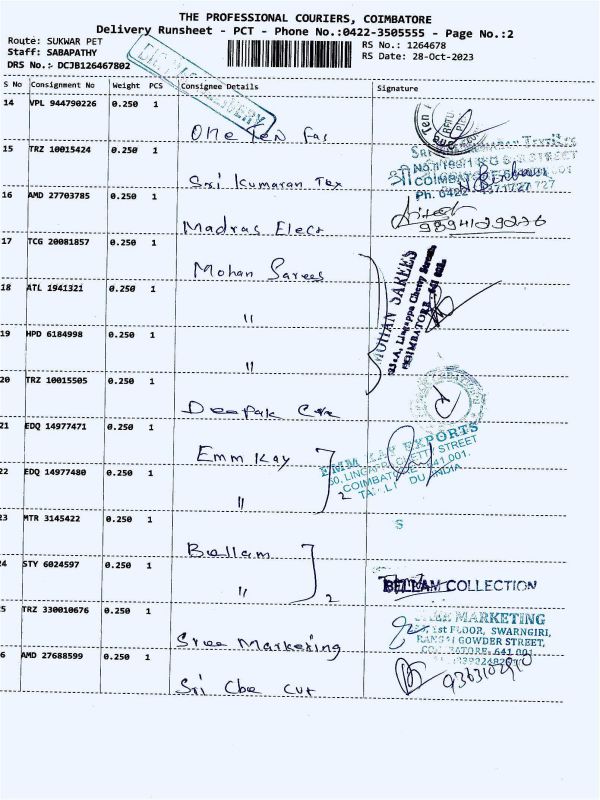 THE PROFESSIONAL COURIERS, COIMBATORE
Delivery Runsheet - PCT - Phone No.:0422-3505555 - Page No.:2
Route: SUKWAR PET
Staff: SABAPATHY
DRS No.: DCJB126467802
RS No.: 1264678
RS Date: 28-Oct-2023
S No Consignment No Weight PCS Consignee Details Signature
14 VPL 944790226 0.250 1
One Ten Fas
15 TRZ 10015424 0.250 1
Sri Kumaran Tex
COIMBATORE
16 AMD 27703785 0.250 1
Madras Elect
9894129276
17 TCG 20081857 0.250 1
Mohan Sarees
MOHAN SAREES
Lingappa Chetty Street
COIMBATORE
18 ATL 1941321 0.250 1
"
19 HPD 6184998 0.250 1
"
20 TRZ 10015505 0.250 1
Deepak
21 EDQ 14977471 0.250 1
Emm Kay
EMM KAY EXPORTS
LINGAPPA CHETTY STREET
COIMBATORE 641 001.
INDIA
22 EDQ 14977480 0.250 1
" 2
23 MTR 3145422 0.250 1
Bellam
S
24 STY 6024597 0.250 1
" 2
COLLECTION
25 TRZ 330010676 0.250 1
Sree Marketing
SREE MARKETING
1st FLOOR, SWARNGIRI,
GOWDER STREET,
641 001
26 AMD 27688599 0.250 1
Sri Cbe Cut